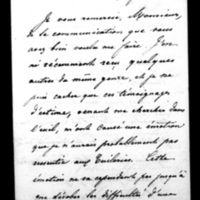 Je vous remercie, Monsieur,
de la communication que vous
avez bien voulu me faire. J'en
ai récemment reçu quelques
autres du même genre, et je ne
puis cacher que ces témoignages
d'estime, venant me chercher dans
l'exil, m'ont causé une émotion
que je n'aurais probablement pas
ressentie aux Tuileries. Cette
émotion ne va cependant pas jusqu'à
me les difficultés d'une